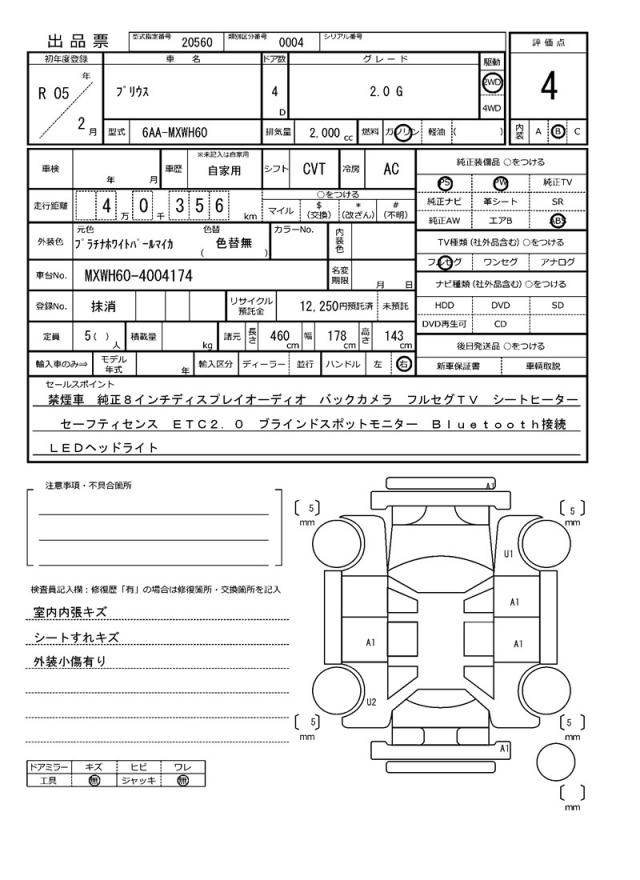 出品票 型式指定番号 20560 類別区分番号 0004 シリアル番号
評価点
初年度登録 車名 ドア数 グレード 駆動
R 05 年 2 月 プリウス 4 D 2.0 G 2WD 4WD
4
型式 6AA-MXWH60 排気量 2,000 cc 燃料 ガソリン 軽油 ( )
内装 A B C
車検 年 月 車歴 ※未記入は自家用 自家用 シフト CVT 冷房 AC
純正装備品 ○をつける
PS PW 純正TV
純正ナビ 革シート SR
純正AW エアB ABS
走行距離 4 万 0 千 3 5 6 km
○をつける
マイル $ (交換) * (改ざん) # (不明)
外装色 元色 プラチナホワイトパールマイカ 色替 ( 色替無 ) カラーNo. 内装色
TV種類 (社外品含む) ○をつける
フルセグ ワンセグ アナログ
車台No. MXWH60-4004174 名変期限 月 日
ナビ種類 (社外品含む) ○をつける
HDD DVD SD
DVD再生可 CD
登録No. 抹消 リサイクル預託金 12,250円預託済 未預託
定員 5( ) 人 積載量 kg 諸元 長さ 460 cm 幅 178 cm 高さ 143 cm
後日発送品 ○をつける
新車保証書 車輌取説
輸入車のみ⇒ モデル年式 年 輸入区分 ディーラー 並行 ハンドル 左 右
セールスポイント
禁煙車 純正8インチディスプレイオーディオ バックカメラ フルセグTV シートヒーター
セーフティセンス ETC2.0 ブラインドスポットモニター Bluetooth接続
LEDヘッドライト
注意事項・不具合箇所
検査員記入欄：修復歴「有」の場合は修復箇所・交換箇所を記入
室内内張キズ
シートすれキズ
外装小傷有り
ドアミラー キズ ヒビ ワレ
工具 無 ジャッキ 無
A1
〔 5 〕 mm
〔 5 〕 mm
U1
A1
A1
A1
U2
〔 5 〕 mm
〔 5 〕 mm
A1
〔 〕 mm